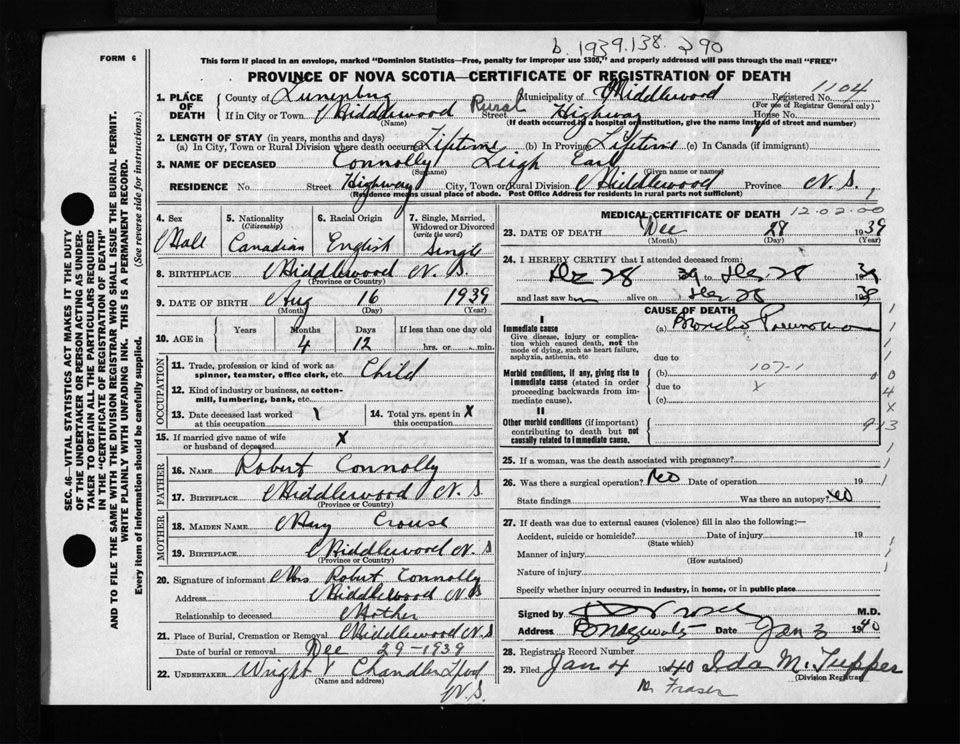 b. 1939.138. 290
FORM 6
This form if placed in an envelope, marked "Dominion Statistics—Free, penalty for improper use $300," and properly addressed will pass through the mail "FREE"
PROVINCE OF NOVA SCOTIA—CERTIFICATE OF REGISTRATION OF DEATH
SEC. 46—VITAL STATISTICS ACT MAKES IT THE DUTY
OF THE UNDERTAKER OR PERSON ACTING AS UNDER-
TAKER TO OBTAIN ALL THE PARTICULARS REQUIRED
IN THE "CERTIFICATE OF REGISTRATION OF DEATH"
AND TO FILE THE SAME WITH THE DIVISION REGISTRAR WHO SHALL ISSUE THE BURIAL PERMIT.
WRITE PLAINLY WITH UNFADING INK. THIS IS A PERMANENT RECORD.
Every item of information should be carefully supplied. (See reverse side for instructions.)
1. PLACE OF DEATH County of Lunenburg Municipality of Middlewood Registered No. 1104
(For use of Registrar General only)
If in City or Town Middlewood Rural Street Highway House No.
(Name) (If death occurred in a hospital or institution, give the name instead of street and number)
2. LENGTH OF STAY (in years, months and days)
(a) In City, Town or Rural Division where death occurred Lifetime (b) In Province Lifetime (c) In Canada (if immigrant)
3. NAME OF DECEASED Connolly Leigh Earl
(Surname) (Given name or names)
RESIDENCE No. Street Highway City, Town or Rural Division Middlewood Province N. S.
(Residence means usual place of abode. Post Office Address for residents in rural parts not sufficient)
4. Sex Male
5. Nationality (Citizenship) Canadian
6. Racial Origin English
7. Single, Married, Widowed or Divorced (write the word) Single
8. BIRTHPLACE Middlewood N. S.
(Province or Country)
9. DATE OF BIRTH Aug 16 1939
(Month) (Day) (Year)
10. AGE in Years Months 4 Days 12 If less than one day old hrs. or min.
OCCUPATION
11. Trade, profession or kind of work as spinner, teamster, office clerk, etc. Child
12. Kind of industry or business, as cotton-mill, lumbering, bank, etc.
13. Date deceased last worked at this occupation
14. Total yrs. spent in this occupation. X
15. If married give name of wife or husband of deceased X
FATHER
16. NAME Robert Connolly
17. BIRTHPLACE Middlewood N. S.
(Province or Country)
MOTHER
18. MAIDEN NAME Mary Crouse
19. BIRTHPLACE Middlewood N. S
(Province or Country)
20. Signature of informant Mrs Robert Connolly
Address Middlewood N S
Relationship to deceased Mother
21. Place of Burial, Cremation or Removal Middlewood N. S
Date of burial or removal Dec 29-1939
22. UNDERTAKER Wright & Chandler
(Name and address)
N. S.
MEDICAL CERTIFICATE OF DEATH 12.02.00
23. DATE OF DEATH Dec 28 1939
(Month) (Day) (Year)
24. I HEREBY CERTIFY that I attended deceased from:
Dec 28 39 to Dec 28 1939
and last saw him alive on Dec 28 1939
CAUSE OF DEATH
I
Immediate cause (a) Broncho Pneumonia
Give disease, injury or complication which caused death, not the mode of dying, such as heart failure, asphyxia, asthenia, etc
due to
Morbid conditions, if any, giving rise to immediate cause (stated in order proceeding backwards from immediate cause). (b) 107-1
due to X
(c)
II
Other morbid conditions (if important) contributing to death but not causally related to immediate cause.
9-13
25. If a woman, was the death associated with pregnancy?
26. Was there a surgical operation? No Date of operation 19
State findings Was there an autopsy? No
27. If death was due to external causes (violence) fill in also the following:—
Accident, suicide or homicide? Date of injury 19
(State which)
Manner of injury
(How sustained)
Nature of injury
Specify whether injury occurred in industry, in home, or in public place
Signed by M.D.
Address Date Jan 3 1940
28. Registrar's Record Number
29. Filed Jan 4 1940 Ida M. Tupper
(Division Registrar)
Fraser